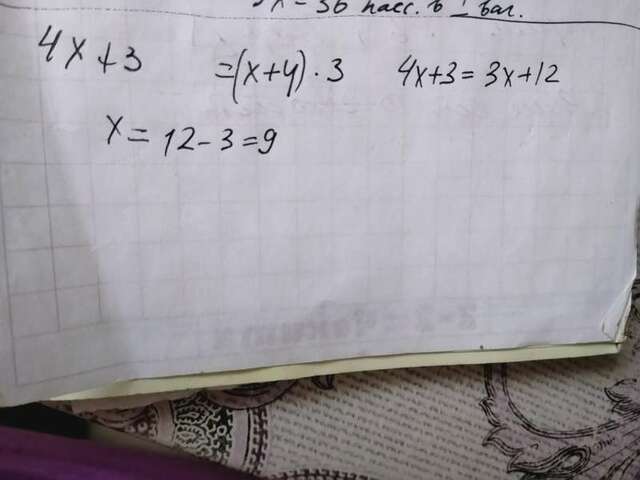 3x = 36 пасс. в 1 ваг.
4x+3 =(x+4)·3 4x+3=3x+12
x=12-3=9